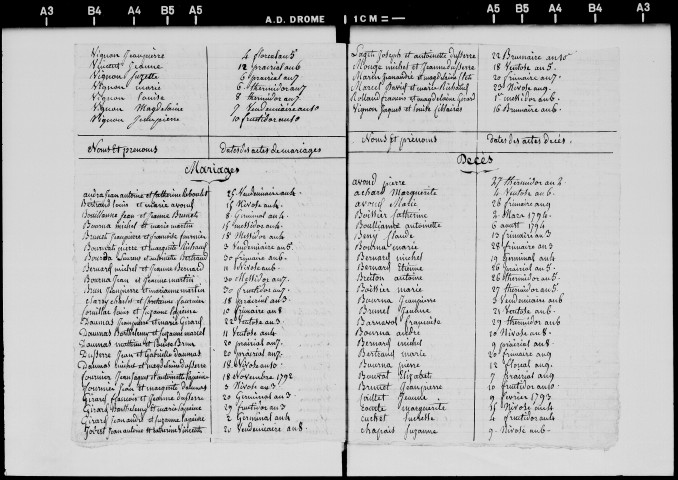 A3 B4 A4 B5 A5 A.D. DROME 1CM A5 B5 A4 B4 A3
Vignon Jeanpierre 4 floreal an 5
Vincent Jeanne 12 prairial an 6
Vignon Suzette 6 prairial an 7
Vignon marie 6 thermidor an 7
Vignon louise 8 thermidor an 7
Vignon Magdelaine 7 Vendemiaire an 10
Vignon Jeanpierre 10 fructidor an 10
Noms et prenoms dates des actes de mariages
Mariages
andré jean antoine et catherine 25 Vendemiaire an 4
Bertrand louis et marie avond 15 Nivose an 4
Bouillanne Jean et Jeanne Brunet 8 Germinal an 4
Bourna michel et marie martin 15 messidor an 4
Brunet Jeanpierre et françoise fournier 18 Messidor an 4
pierre et margueritte 3 Vendemiaire an 5
et antoinette Bertrand 30 frimaire an 6
Bernard michel et Jeanne Bernard 11 Nivose an 6
Bourna Jean et Jeanne martin 30 Messidor an 7
Brun Jeanpierre et marianne martin 30 fructidor an 7
charles et fournier 18 prairial an 3
louis et Suzanne 10 frimaire an 8
Daumas Jeanpierre et marie Girard 22 Ventose an 3
Daumas Barthelemy et Suzanne marcel 11 Ventose an 4
Daumas mathieu et louise Brun 20 prairial an 7
Dusserre Jean et Gabrielle daumas 20 prairial an 7
Daumas michel et magdelaine dusserre 18 Nivose an 10
fournier Jean Jaques et antoinette 18 Novembre 1792
fournier Jean et margueritte daumas 3 Nivose an 3
Girard francois et Jeanne dusserre 20 Germinal an 3
Girard Barthelemy et marie 29 fructidor an 3
Girard Jean andré et Suzanne 2 Germinal an 4
Jean antoine et catherine Vincent 20 Vendemiaire an 8
Joseph et antoinette dusserre 22 Brumaire an 10
michel et Jeanne dusserre 18 Ventose an 5
et magdelaine 20 frimaire an 7
Marcel David et marie 23 Nivose an 9
Rolland francois et magdelaine Girard 1er messidor an 6
Vignon Jaques et louise 16 Brumaire an 6
Noms et prénoms dates des actes décés
Décés
avond pierre 27 thermidor an 2
achard Margueritte 4 Ventose an 6
avond Marie 26 frimaire an 9
Boissier Catherine 2 Mars 1794
Bouillanne antoinette 6 aoust 1794
Beny Claude 13 frimaire an 3
Bourna marie 28 frimaire an 3
Bernard michel 19 Germinal an 4
Bernard Etienne 26 prairial an 5
Breton antoine 26 thermidor an 5
Boissier marie 27 thermidor an 5
Bourna Jeanpierre 3 Vendemiaire an 6
Brunel Jeanne 21 Ventose an 6
Barneron françoise 29 thermidor an 6
Bourna andré 20 Nivose an 6
Bernard michel 9 prairial an 8
Bertrand marie 20 frimaire an 9
Bourna pierre 12 floreal an 9
Elizabet 7 prairial an 9
Brunet Jeanpierre 10 fructidor an 10
Jeanne 9 fevrier 1793
margueritte 15 Nivose an 4
4 fructidor an 4
chapais Suzanne 9 Nivose an 6